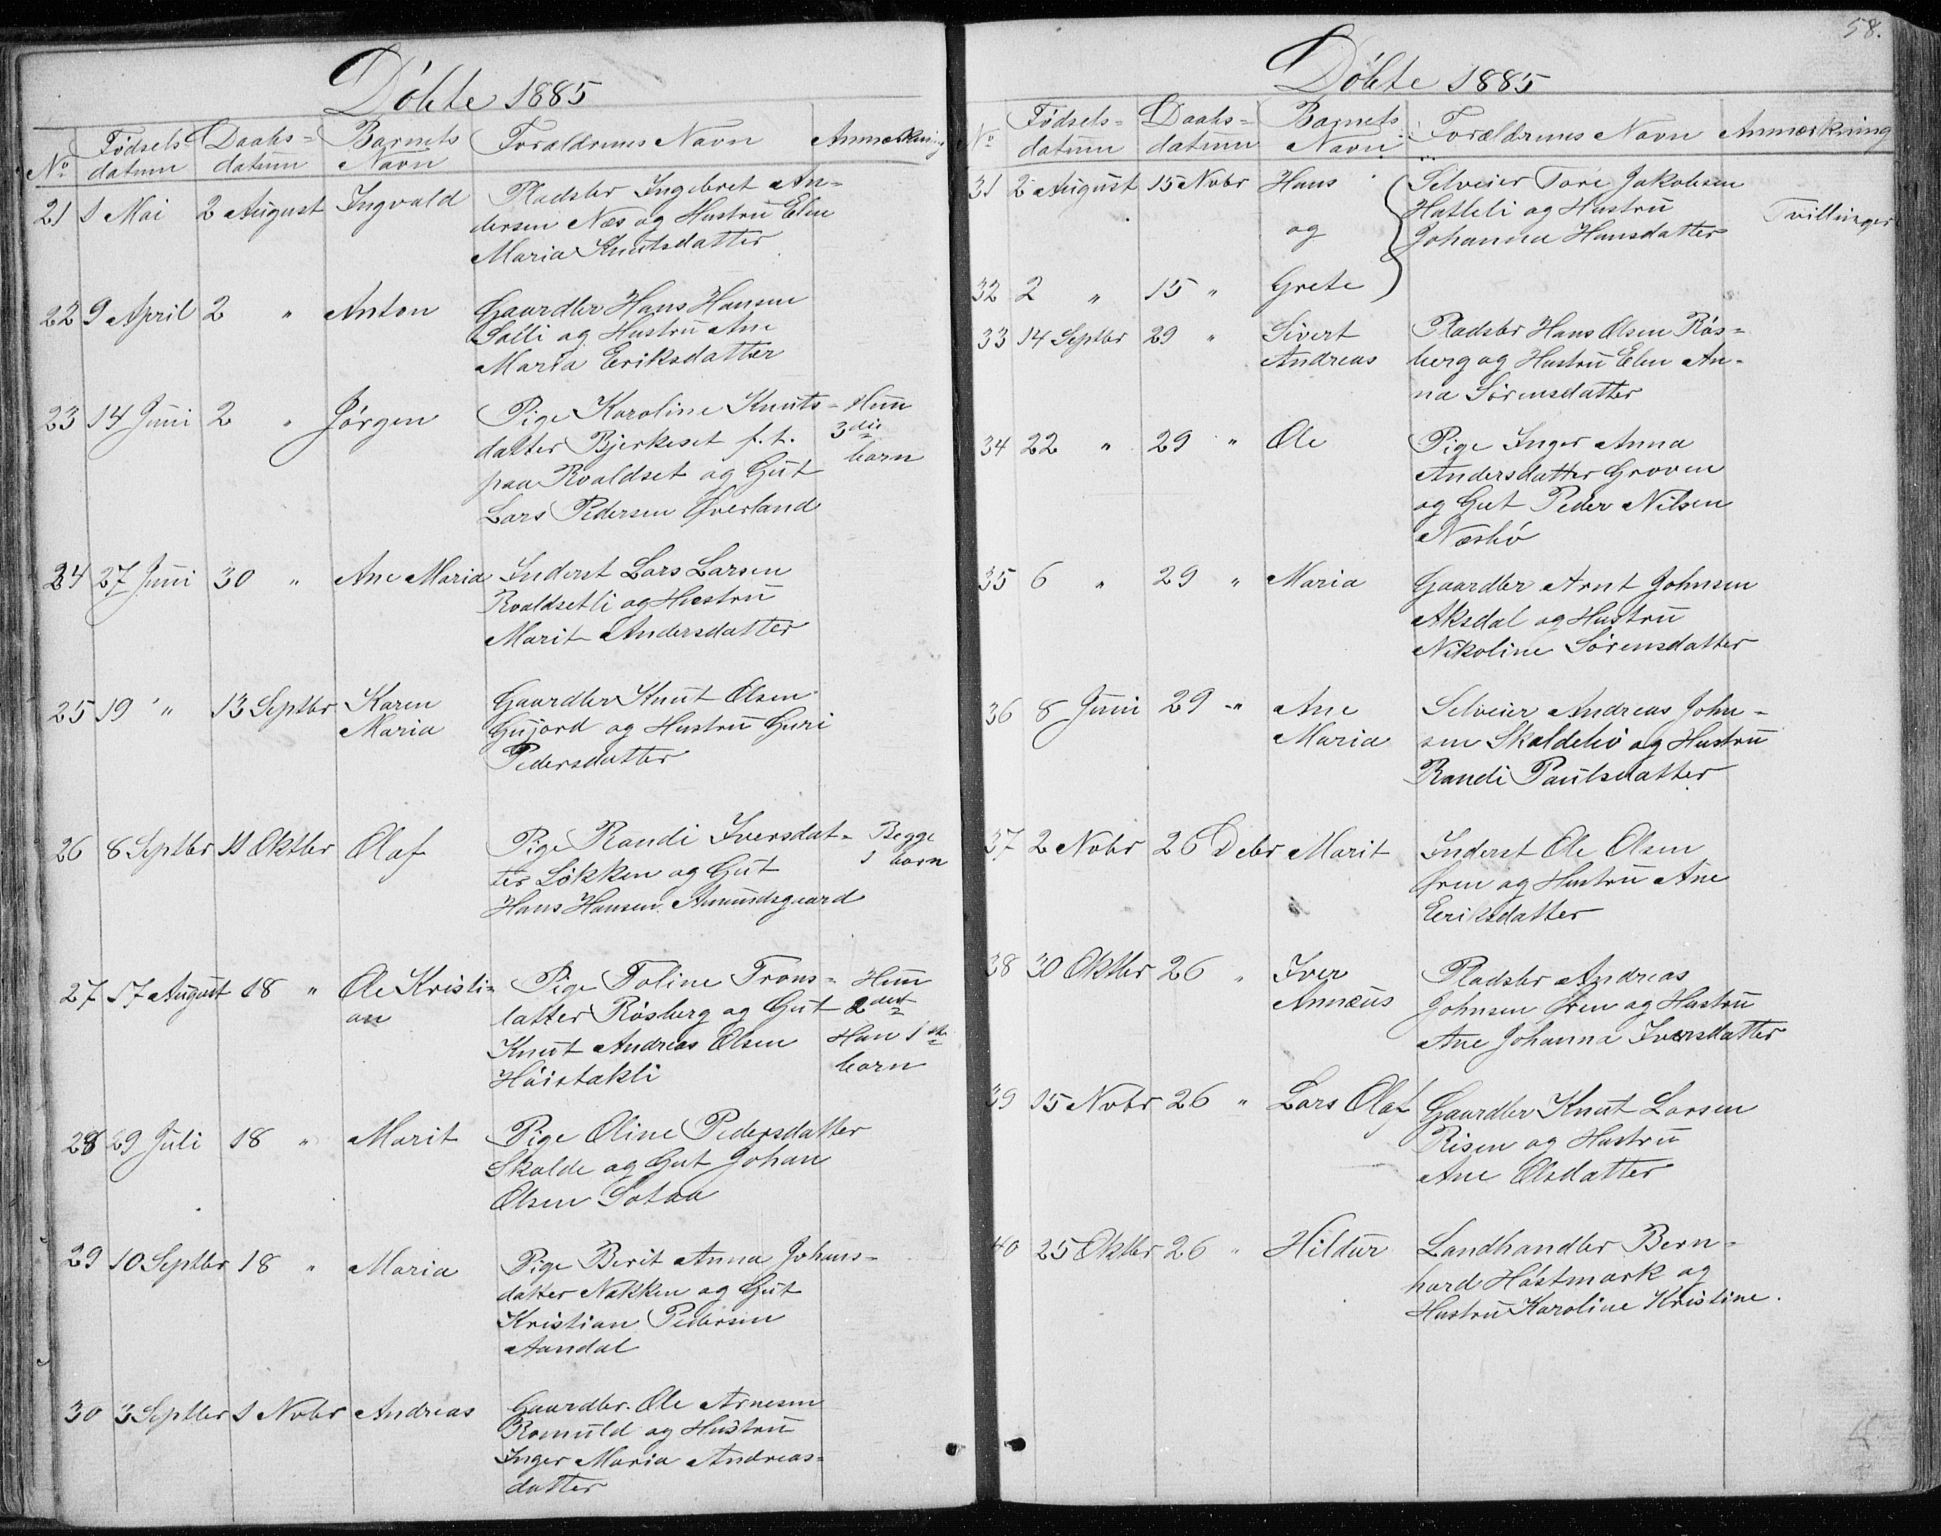 Döbte 1885
No Fødsels datum Daabs= datum Barnets Navn Forældrenes Navn Anmærkning
21 1 Mai 2 August Ingvald Pladsbr Ingebret An=
dersen Næs og Hustru Elen
Maria Knutsdatter
22 9 April 2 " Anton Gaardbr Hans Hansen
Solli og Hustru Ane
Maria Eriksdatter
23 14 Juni 2 " Jørgen Pige Karoline Knuts= Hun
datter Bjerkeset f. t. 3die
paa Roaldset og Gut barn
Lars Pedersen Øverland
24 27 Juni 30 " Ane Maria Inderst Lars Larsen
Roaldsetli og Hustru
Marit Andersdatter
25 19 " 13 Septbr Karen Gaardbr Knut Olsen
Maria Gujord og Hustru Guri
Pedersdatter
26 8 Septbr 11 Oktbr Olaf Pige Randi Iversdat= Begge
ter Løkken og Gut 1 barn
Hans Hansen Amundsgaard
27 17 August 18 " Ole Kristi= Pige Toline Trons= Hun
an datter Røsberg og Gut 2det
Knut Andreas Olsen Han 1ste
Höistakli barn
28 29 Juli 18 " Marit Pige Oline Pedersdatter
Skalde og Gut Johan
Olsen Sotaa
29 10 Septbr 18 " Maria Pige Berit Anna Johans=
datter Nakken og Gut
Kristian Pedersen
Aandal
30 3 Septbr 1 Nobr Andreas Gaardbr. Ole Arnesen
Romuld og Hustru
Inger Maria Andreas=
datter
58.
Döbte 1885
No Fødsels= datum Daabs= datum Barnets Navn Forældrenes Navn Anmærkning
31 2 August 15 Nobr Hans Selveier Tore Jakobsen
Hatleli og Hustru Tvillinger
og Johanna Hansdatter
32 2 " 15 " Grete
33 14 Septbr 29 " Sivert Pladsbr Hans Olsen Røs=
Andreas berg og Hustru Elen An=
na Sørensdatter
34 22 " 29 " Ole Pige Inger Anna
Andersdatter Groven
og Gut Peder Nilsen
Næsbö
35 6 " 29 " Maria Gaardbr Arnt Johnsen
Aksdal og Hustru
Nikoline Sørensdatter
36 8 Juni 29 " Ane Selveier Andreas John=
Maria sen Skaldebö og Hustru
Randi Paulsdatter
37 2 Nobr 26 Debr Marit Inderst Ole Olsen
Øren og Hustru Ane
Eeriksdatter
38 30 Oktbr 26 " Iver Pladsbr Andreas
Annæus Johnsen Øren og Hustru
Ane Johanna Iversdatter
39 15 Nobr 26 " Lars Olaf Gaardbr Knut Larsen
Risen og Hustru
Ane Olsdatter
40 25 Oktbr 26 " Hildur Landhandler Bern=
hard Høstmark og
Hustru Karoline Kristine.